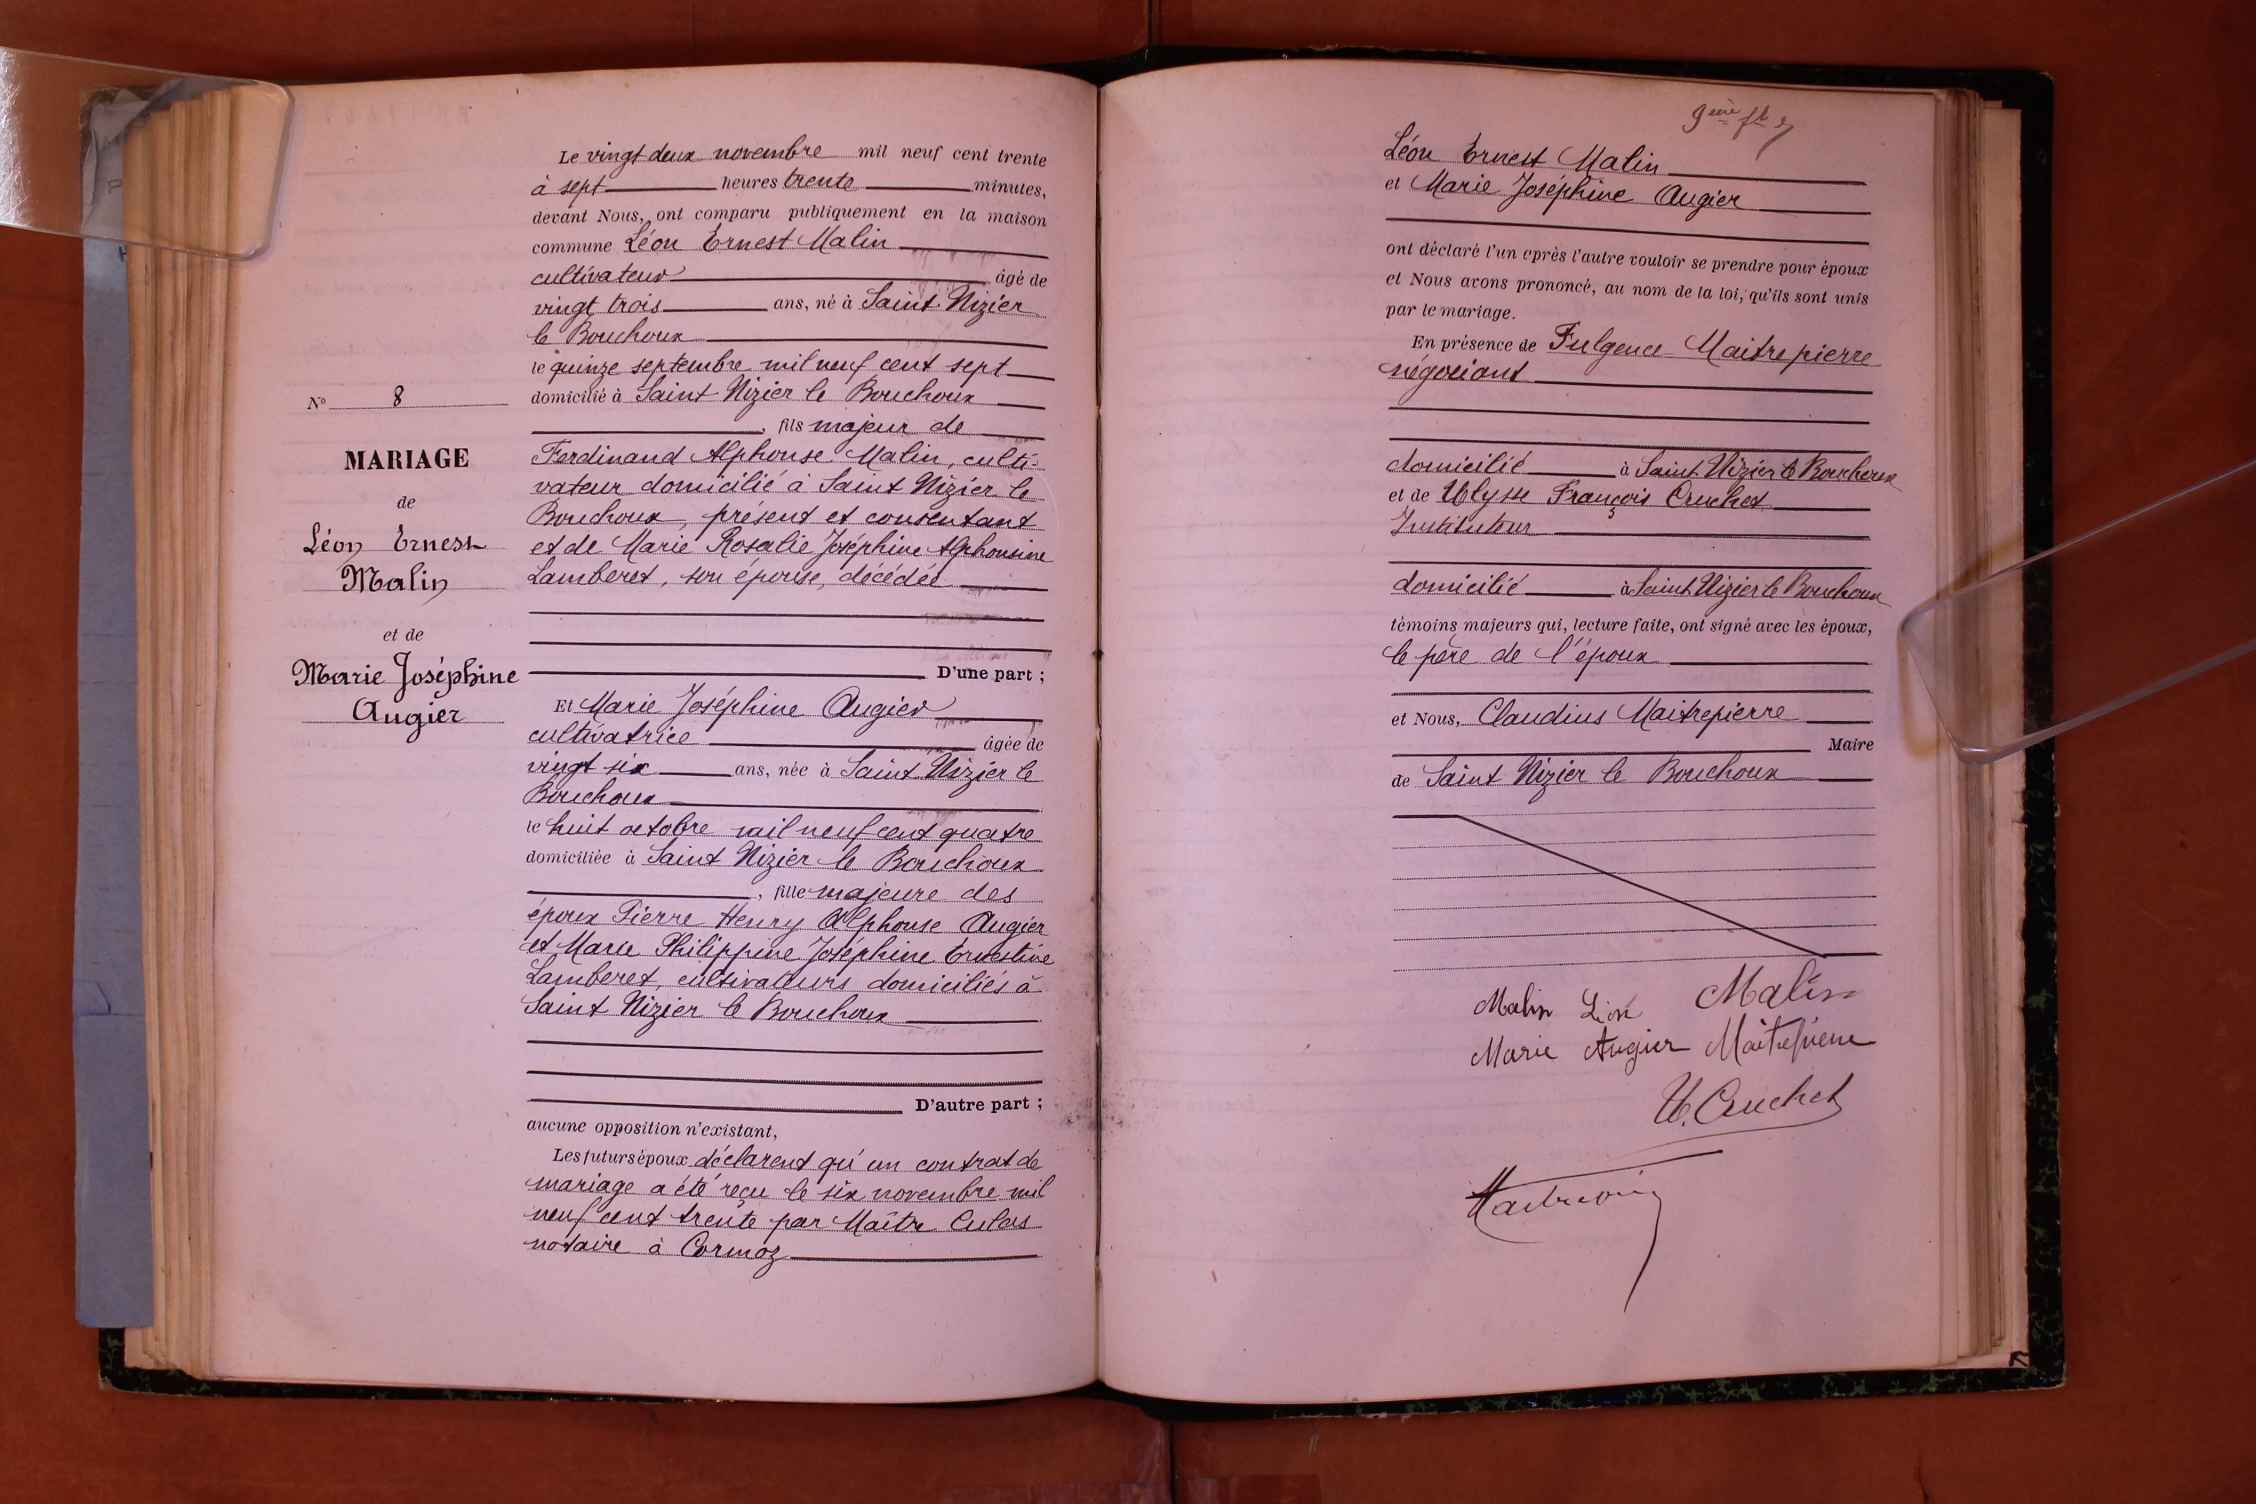 Le vingt deux novembre mil neuf cent trente
à sept heures trente minutes,
devant Nous, ont comparu publiquement en la maison
commune Léon Ernest Malin
cultivateur âgé de
vingt trois ans, né à Saint Nizier
le Bouchoux
le quinze septembre mil neuf cent sept
domicilié à Saint Nizier le Bouchoux
, fils majeur de
Ferdinand Alphonse Malin, culti-
vateur domicilié à Saint Nizier le
Bouchoux, présent et consentant
et de Marie Rosalie Joséphine Alphonsine
Lamberet, son épouse, décédée
D'une part ;
Et Marie Joséphine Augier
cultivatrice âgée de
vingt six ans, née à Saint Nizier le
Bouchoux
le huit octobre mil neuf cent quatre
domiciliée à Saint Nizier le Bouchoux
, fille majeure des
époux Pierre Henry Alphonse Augier
et Marie Philippine Joséphine Ernestine
Lamberet, cultivateurs domiciliés à
Saint Nizier le Bouchoux
D'autre part ;
aucune opposition n'existant,
Les futurs époux déclarent qu'un contrat de
mariage a été reçu le six novembre mil
neuf cent trente par Maître Culas
notaire à Cormoz
No 8
MARIAGE
de
Léon Ernest
Malin
et de
Marie Joséphine
Augier
9ème ft
Léon Ernest Malin
et Marie Joséphine Augier
ont déclaré l'un après l'autre vouloir se prendre pour époux
et Nous avons prononcé, au nom de la loi, qu'ils sont unis
par le mariage.
En présence de Fulgence Maitrepierre
négociant
domicilié à Saint Nizier le Bouchoux
et de Ulysse François Cruchet
Instituteur
domicilié à Saint Nizier le Bouchoux
témoins majeurs qui, lecture faite, ont signé avec les époux,
le père de l'époux
et Nous, Claudius Maitrepierre
Maire
de Saint Nizier le Bouchoux
Malin Léon Malin
Marie Augier Maitrepierre
U. Cruchet